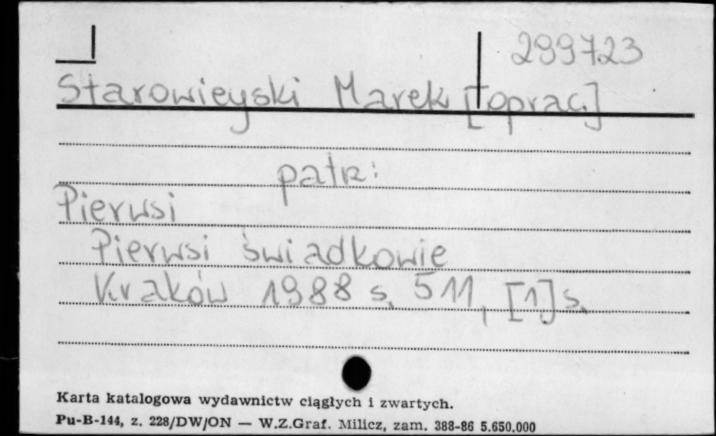 299723
Starowieyski Marek [oprac.]
patrz:
Pierwsi
Pierwsi świadkowie
Kraków 1988 s. 511, [1] s.
Karta katalogowa wydawnictw ciągłych i zwartych.
Pu-B-144, z. 228/DW/ON — W.Z.Graf. Milicz, zam. 388-86 5.650.000